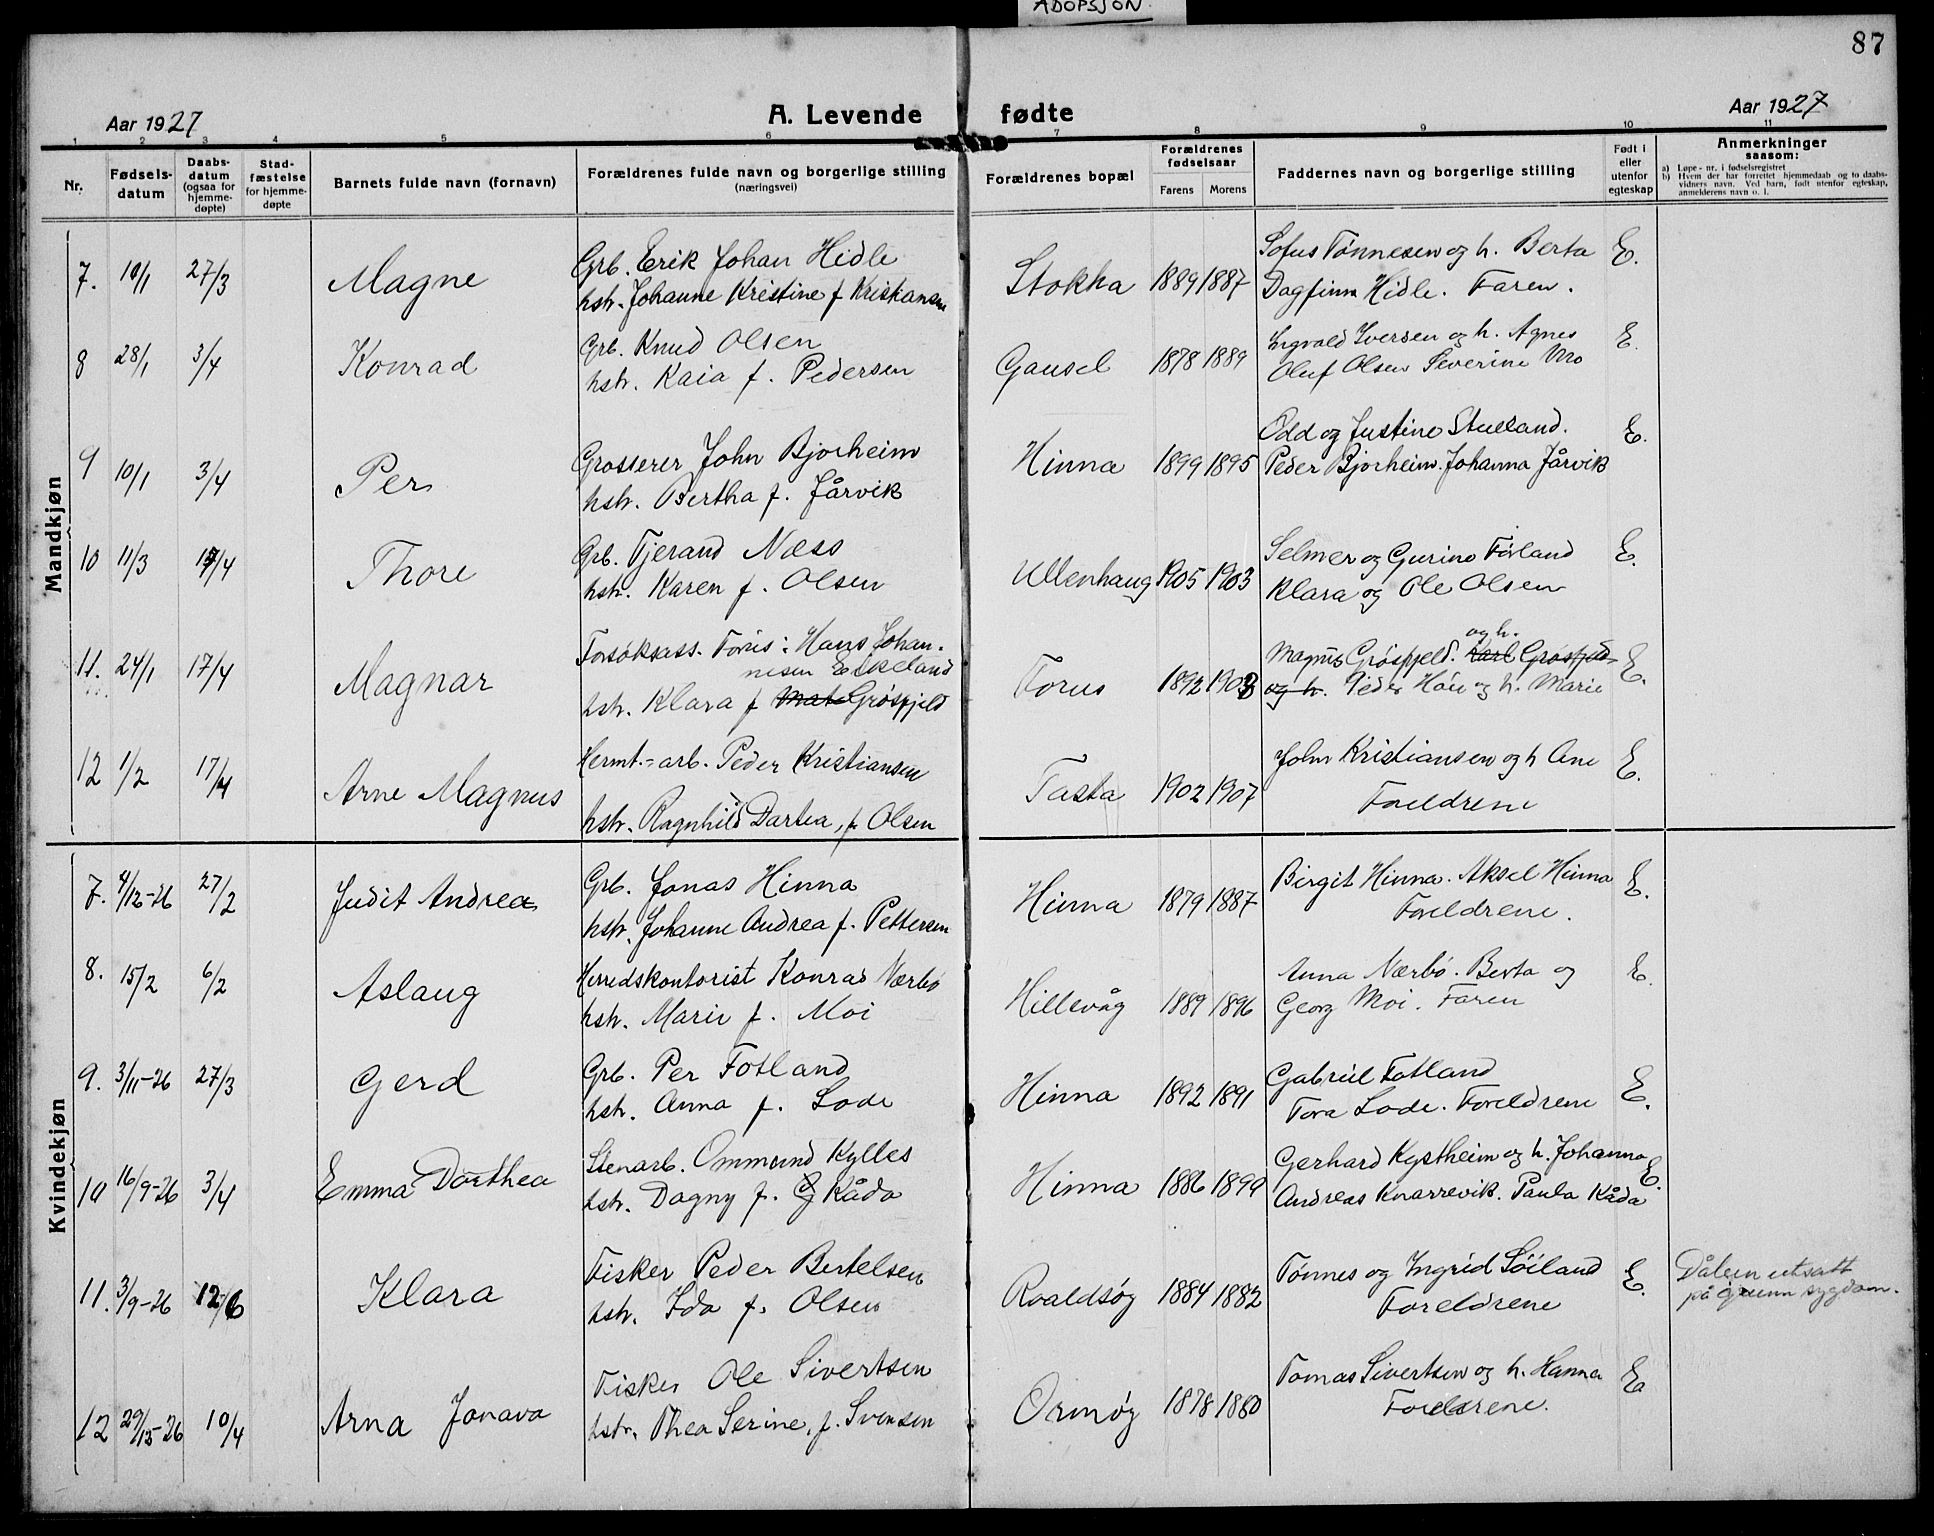 ADOPSJON.
87
Aar 1927 A. Levende fødte Aar 1927
1 2 3 4 5 6 7 8 9 10 11
Nr. Fødsels-datum Daabs-datum (ogsaa for hjemme-døpte) Stad-fæstelse for hjemme-døpte Barnets fulde navn (fornavn) Forældrenes fulde navn og borgerlige stilling (næringsvei) Forældrenes bopæl Forældrenes fødselsaar Farens Morens Faddernes navn og borgerlige stilling Født i eller utenfor egteskap Anmerkninger saasom:
a) Løpe-nr. i fødselsregistret
b) Hvem der har forrettet hjemmedaab og to daabs-
vidners navn. Ved barn, født utenfor egteskap,
anmelderens navn o. l.
Mandkjøn
7. 10/1 27/3 Magne Grb. Erik Johan Hidle Stokka 1889 1887 Sofus Tønnesen og h. Berta E.
hstr. Johanne Kristine f. Kristiansen Dagfinn Hidle. Faren.
8 28/1 3/4 Konrad Grb. Knud Olsen Gausel 1878 1889 Ingvald Iversen og h. Agnes E.
hstr. Kaia f. Pedersen Oluf Olsen Severine Mo
9 10/1 3/4 Per Grosserer John Bjorheim Hinna 1899 1895 Odd og Justine Stueland. E.
hstr. Bertha f. Jårvik Peder Bjorheim. Johanna Jårvik
10 11/3 17/4 Thore Grb. Tjerand Næss Ullenhaug 1905 1903 Selmer og Gurine Førland E.
hstr. Karen f. Olsen Klara og Ole Olsen
11. 24/1 17/4 Magnar Forsøksass. Forus: Hans Johan-
nesen Eikeland Forus 1892 1903 Magnus Grøsfjeld. Karl og h. Grøsfjeld E.
hstr. Klara f. Mat Grøsfjeld og h. Peder Håu og h. Marie
12 1/2 17/4 Arne Magnus Hermt.-arb. Peder Kristiansen Tasta 1902 1907 John Kristiansen og h Ane E.
hstr. Ragnhild Dartea, f. Olsen Foreldrene
Kvindekjøn
7. 4/12-26 27/2 Judit Andrea Grb. Jonas Hinna Hinna 1879 1887 Birgit Hinna. Aksel Hinna E.
hstr. Johanne Andrea f. Pettersen Foreldrene.
8. 15/2 6/2 Aslaug Herredskontorist Konrad Nærbø Hillevåg 1889 1896 Anna Nærbø. Berta og E.
hstr. Marie f. Moi Georg Moi. Faren
9. 3/11-26 27/3 Gerd Grb. Per Fotland Hinna 1892 1891 Gabriel Fotland E.
hstr. Anna f. Lode Tora Lode. Foreldrene
10 16/9-26 3/4 Emma Dorthea Stenarb. Ommund Kylles Hinna 1886 1899 Gerhard Kystheim og h. Johanna E.
hstr. Dagny f. G Kåda Andreas Knarrevik. Paula Kåda
11. 3/9-26 12/6 Klara Fisker Peder Bertelsen Roaldsøy 1884 1882 Tønnes og Ingrid Söiland E. Dåben utsatt
hstr. Ida f. Olsen Foreldrene på grunn sygdom.
12 29/12-26 10/4 Arna Jonava Fisker Ole Sivertsen Ormøy 1878 1880 Tomas Sivertsen og h. Hanna E
hstr. Thea Serine, f. Svensen Foreldrene.